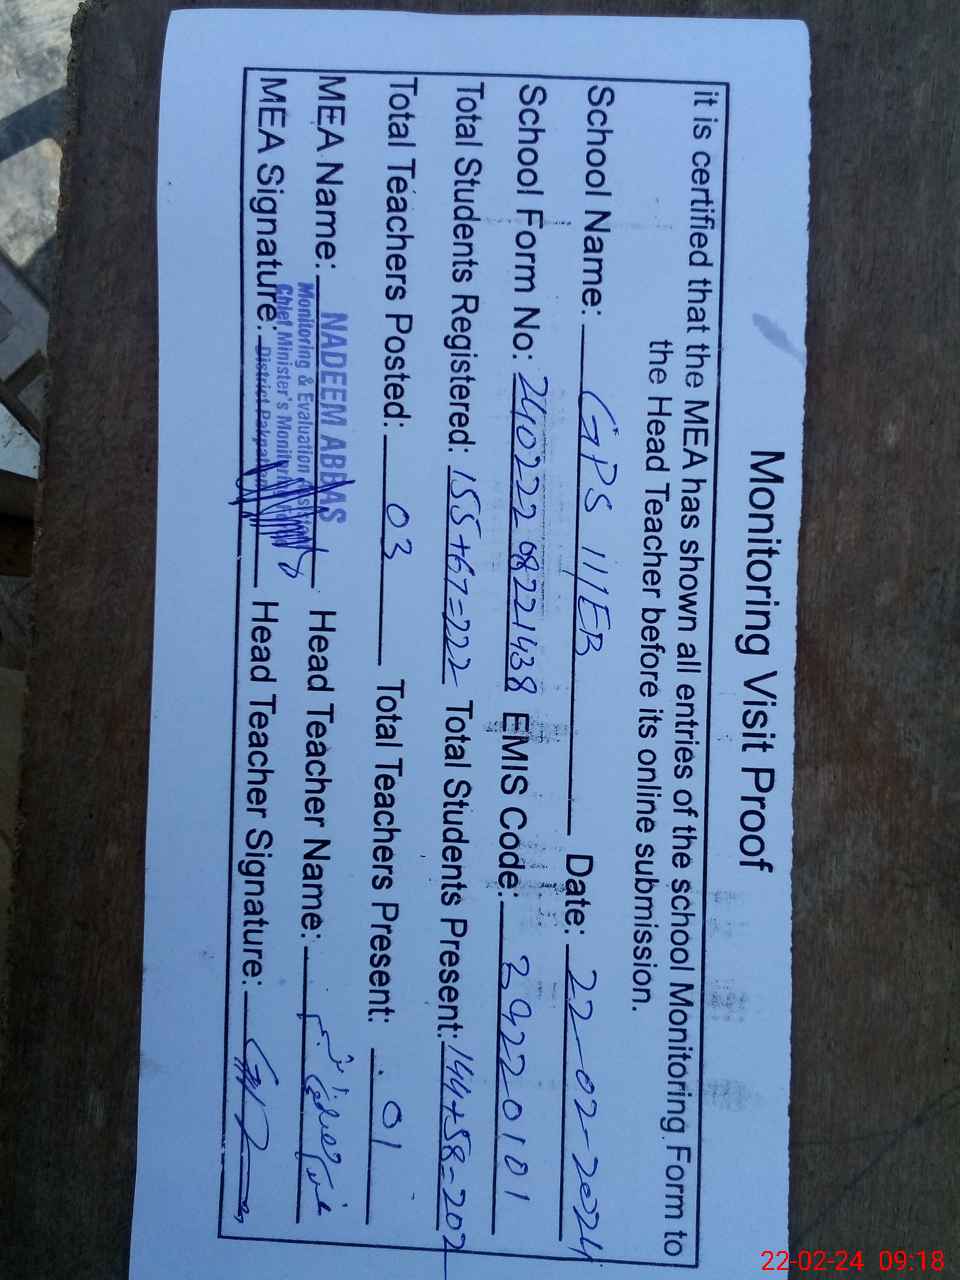 Monitoring Visit Proof
it is certified that the MEA has shown all entries of the school Monitoring Form to
the Head Teacher before its online submission.
School Name: GPS 111/EB Date: 22-02-2024
School Form No: 24022208221438 EMIS Code: 39220101
Total Students Registered: 155+67=222 Total Students Present: 144+58=202
Total Teachers Posted: 03 Total Teachers Present: 01
MEA Name: NADEEM ABBAS Head Teacher Name:
Monitoring & Evaluation
Chief Minister's
MEA Signature: District Head Teacher Signature:
22-02-24 09:18